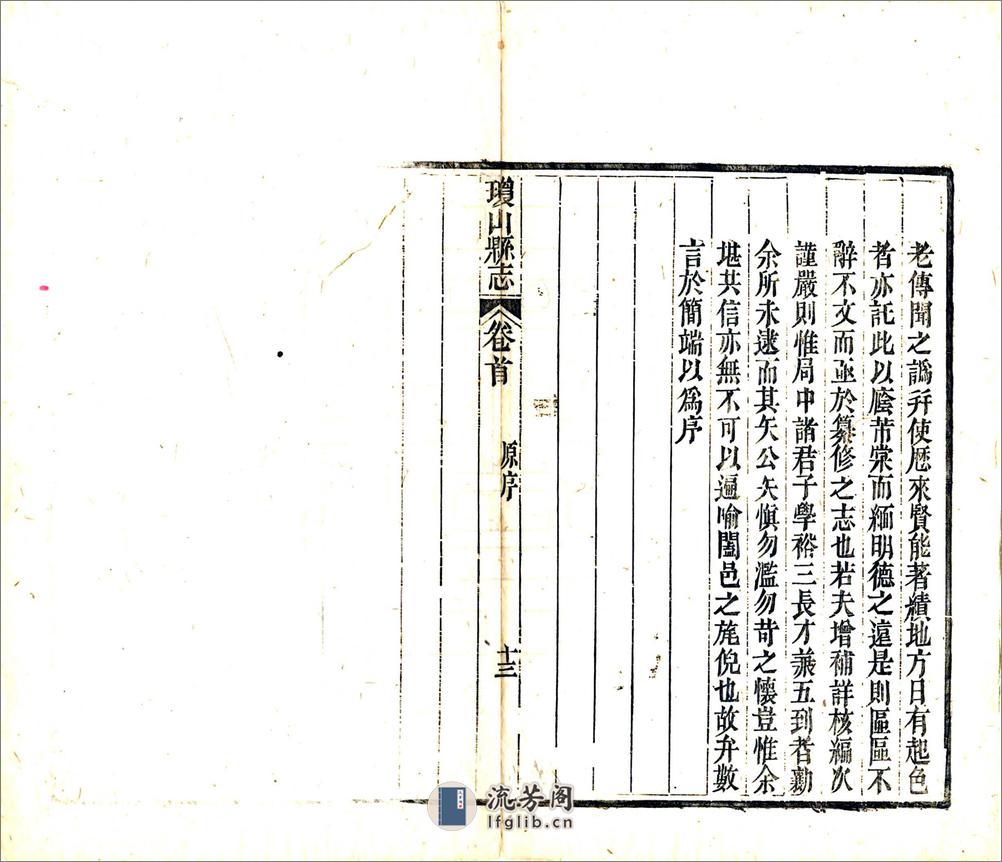 老傳聞之譌并使厯來賢能著績地方日有起色
者亦託此以廕芾棠而緬明德之遠是則區區不
辭不文而亟於纂修之志也若夫增補詳核編次
謹嚴則惟局中諸君子學裕三長才兼五到者勷
余所未逮而其矢公矢慎勿濫勿苛之懷豈惟余
堪共信亦無不可以遍喻闔邑之旄倪也故弁數
言於簡端以為序
瓊山縣志
卷首
原序
十三
流芳阁
lfglib.cn